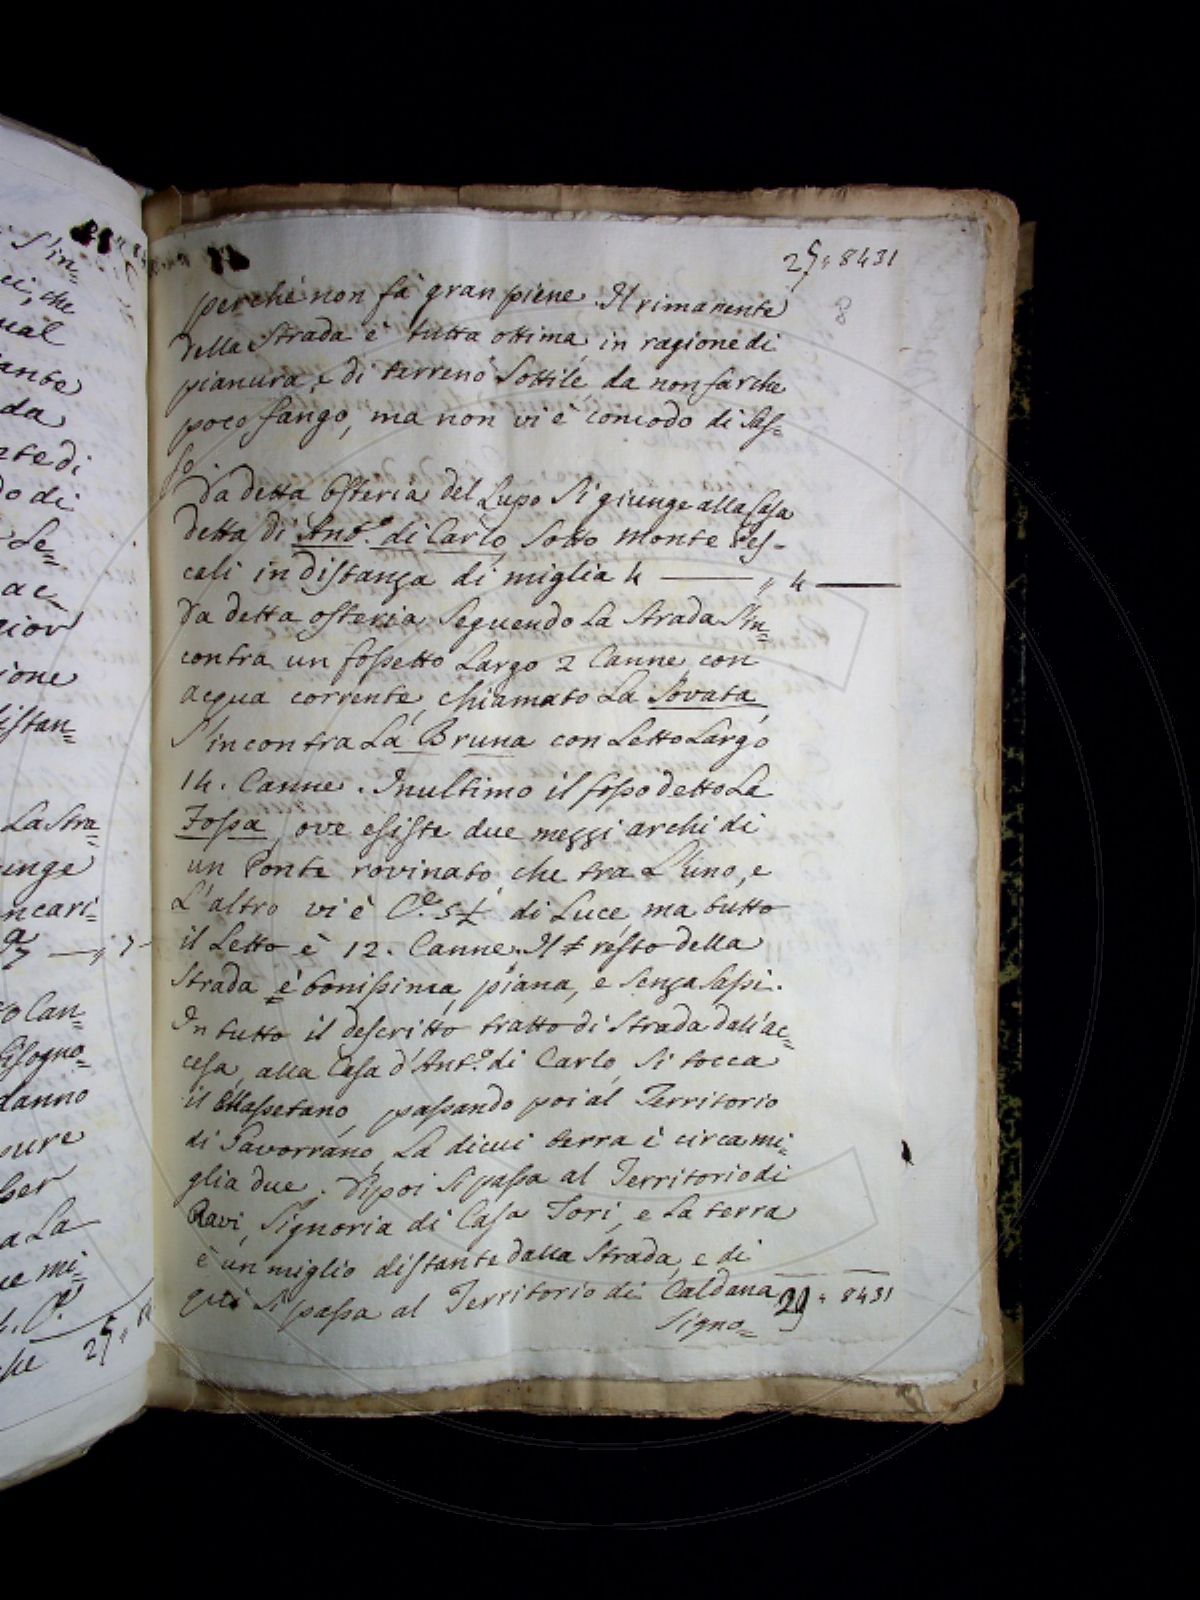 25,, 8431
8
perche non fà gran piene. Il rimanente
della Strada è tutta ottima in ragione di
pianura, e di terreno Sottile da non far che
poco fango, ma non vi è comodo di Sas=
so.
Da detta Osteria del Lupo Si giunge alla Casa
detta di Ant.º di Carlo Sotto Monte Pes-
cali in distanza di miglia 4 ,, 4
Da detta osteria Seguendo La Strada S'in=
contra un fossetto Largo 2 Canne con
acqua corrente, chiamato La Sovata,
S'incontra La Bruna con Letto Largo
14. Canne. In ultimo il fosso detto La
Fossa ove esiste due mezzi archi di
un Ponte rovinato che tra L'uno, e
L'altro vi è C.e 5½ di Luce, ma tutto
il Letto è 12. Canne. Il resto della
Strada è bonissima, piana, e Senza Sassi.
In tutto il descritto tratto di Strada dall'ac=
cesa, alla Casa d'Ant.º di Carlo, Si tocca
il Massetano, passando poi al Territorio
di Gavorrano, La di cui terra è circa mi=
glia due. Dipoi Si passa al Territorio di
Ravi, Signoria di Casa Tori, e La terra
è un miglio distante dalla Strada, e di
qui Si passa al Territorio di Caldana
29,, 8431
Signo=
S'in=
che
ual
ante
da
nte di
do di
Le=
ac=
gior
ione
distan=
La Stra=
unge
ncari=
,, 7
to Can=
bisogno=
danno
pure
sser
a La
ue mi=
25,,